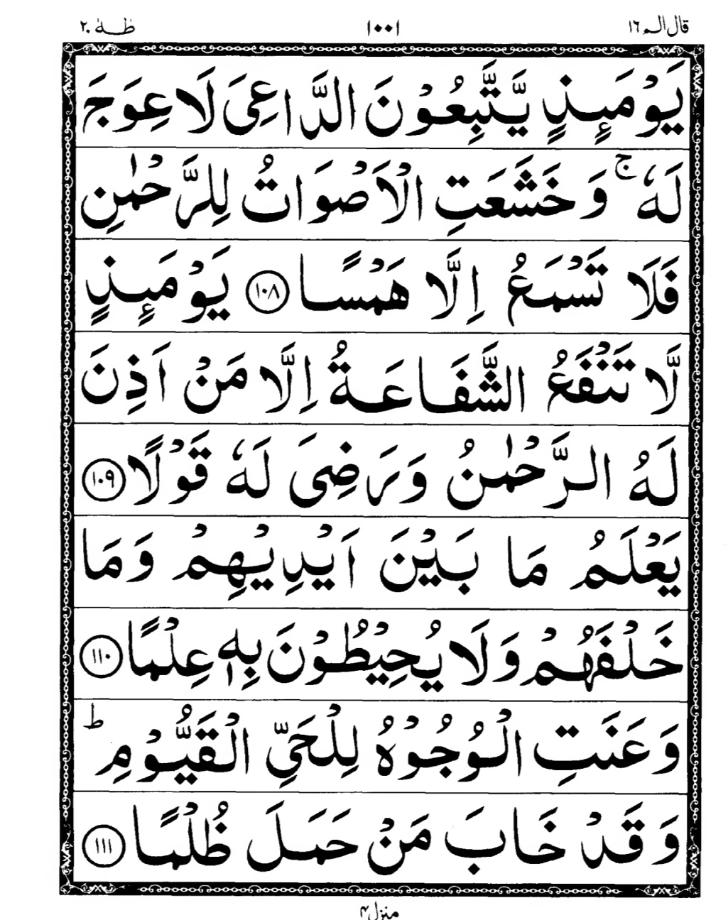 قال الم ١٦ ١٠٠١ طٰهٰ ٢٠
يَوْمَىِٕذٍ يَّتَّبِعُوْنَ الدَّاعِىَ لَا عِوَجَ
لَهٗ ۚ وَخَشَعَتِ الْاَصْوَاتُ لِلرَّحْمٰنِ
فَلَا تَسْمَعُ اِلَّا هَمْسًا ١٠٨ يَوْمَىِٕذٍ
لَّا تَنْفَعُ الشَّفَاعَةُ اِلَّا مَنْ اَذِنَ
لَهُ الرَّحْمٰنُ وَرَضِىَ لَهٗ قَوْلًا ١٠٩
يَعْلَمُ مَا بَيْنَ اَيْدِيْهِمْ وَمَا
خَلْفَهُمْ وَلَا يُحِيْطُوْنَ بِهٖ عِلْمًا ١١٠
وَعَنَتِ الْوُجُوْهُ لِلْحَىِّ الْقَيُّوْمِ ؕ
وَقَدْ خَابَ مَنْ حَمَلَ ظُلْمًا ١١١
منزل ۴